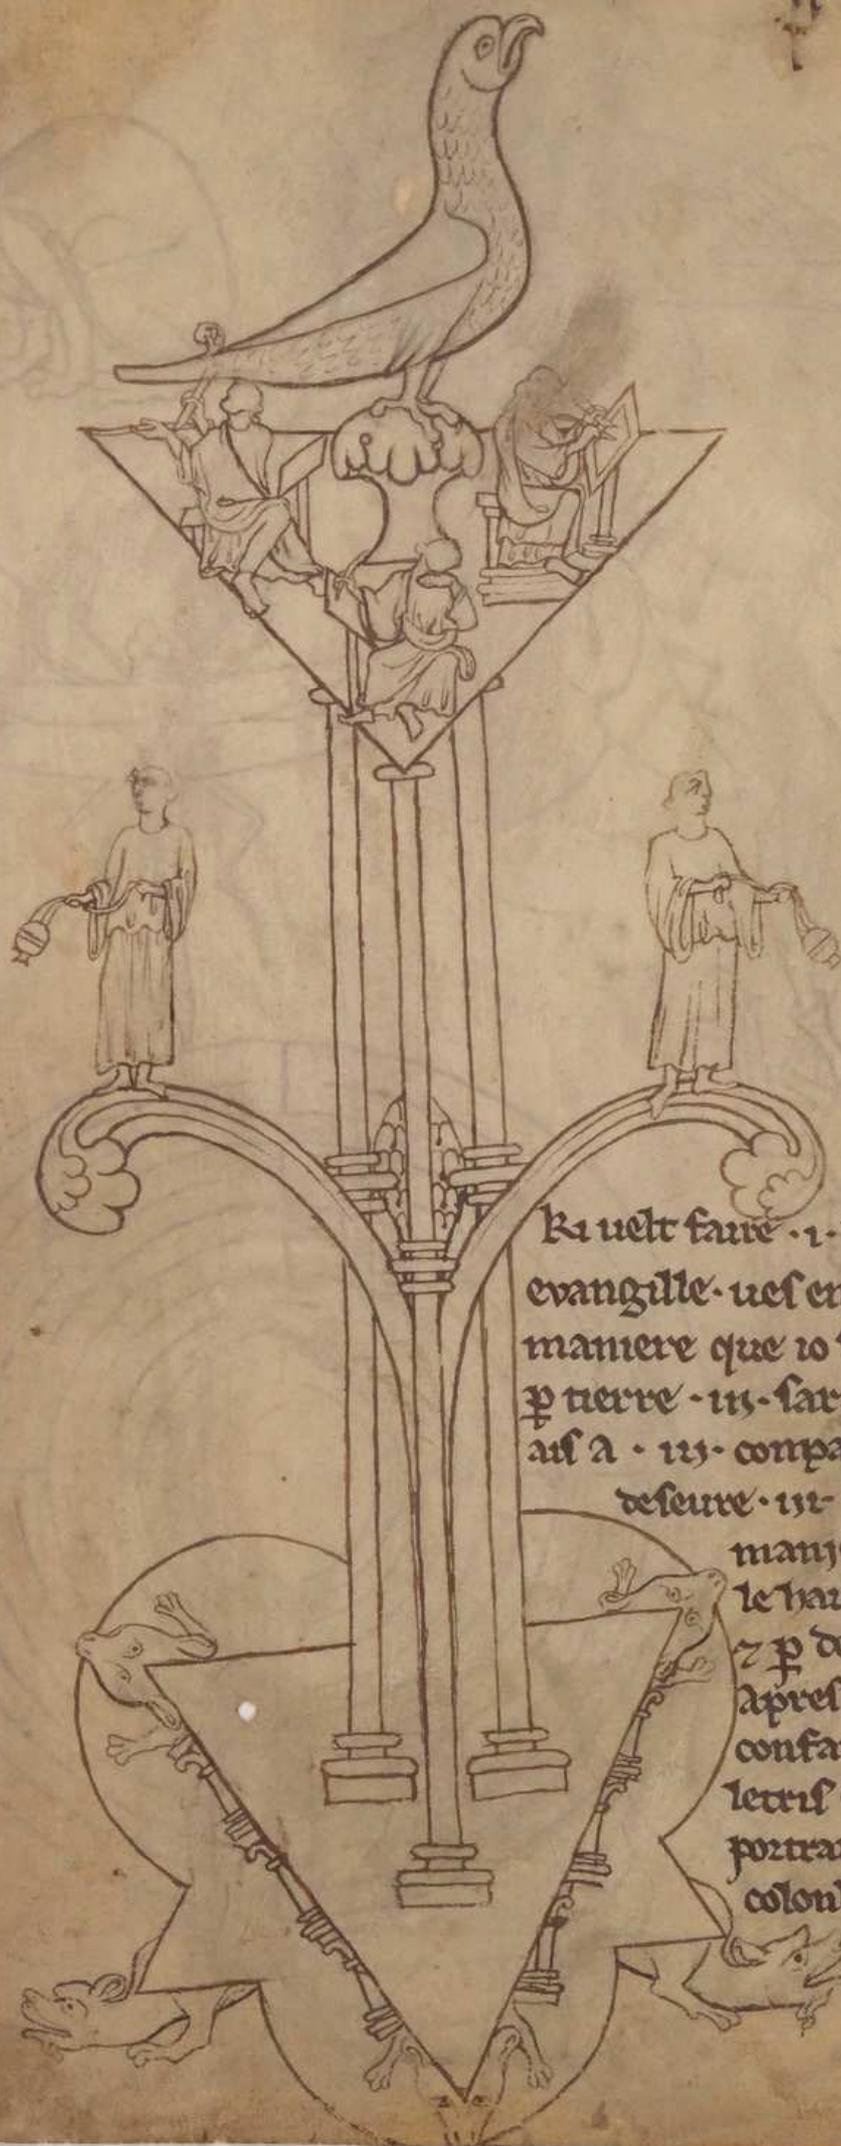 Ki velt faire · i ·
evangille · ves en
maniere que io
ꝑ tierre · iij · sar
ais a · iij · compa
deseure · iij
mani
le hau
⁊ ꝑ de
apres
confa
letris
portra
colon